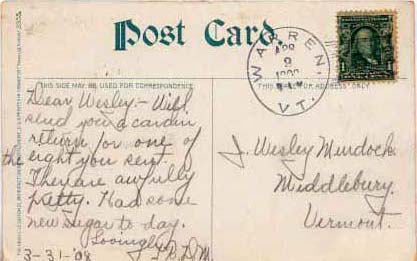 Post Card
WARREN.
APR
9
VT.
THIS SIDE MAY BE USED FOR CORRESPONDENCE
THIS SIDE FOR ADDRESS ONLY
Dear Wesley - Will
send you a card in
return for one of
the eight you sent.
They are awfully
pretty. Had some
new sugar to-day.
Lovingly
3-31-08
J. Wesley Murdock
Middlebury.
Vermont.